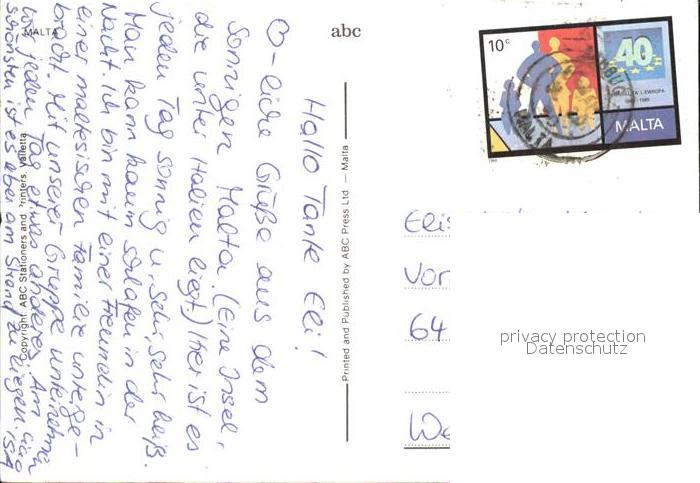 MALTA
abc
Hallo Tante Eli!
♡-liche Grüße aus dem
sonnigen Malta. (Eine Insel,
die unter Italien liegt.) Hier ist es
jeden Tag sonnig u. sehr, sehr heiß.
Man kann kaum schlafen in der
Nacht. Ich bin mit einer Freundin in
einer maltesischen Familie unterge-
bracht. Mit unserer Gruppe unternehmen
wir jeden Tag etwas anderes. Am
schönsten ist es aber am Strand zu liegen.
Copyright: ABC Stationers and Printers, Valletta
Printed and Published by ABC Press Ltd — Malta
10c
40
1949 - 1989
MALTA
MALTA
Elis
Vor
64
We
privacy protection
Datenschutz